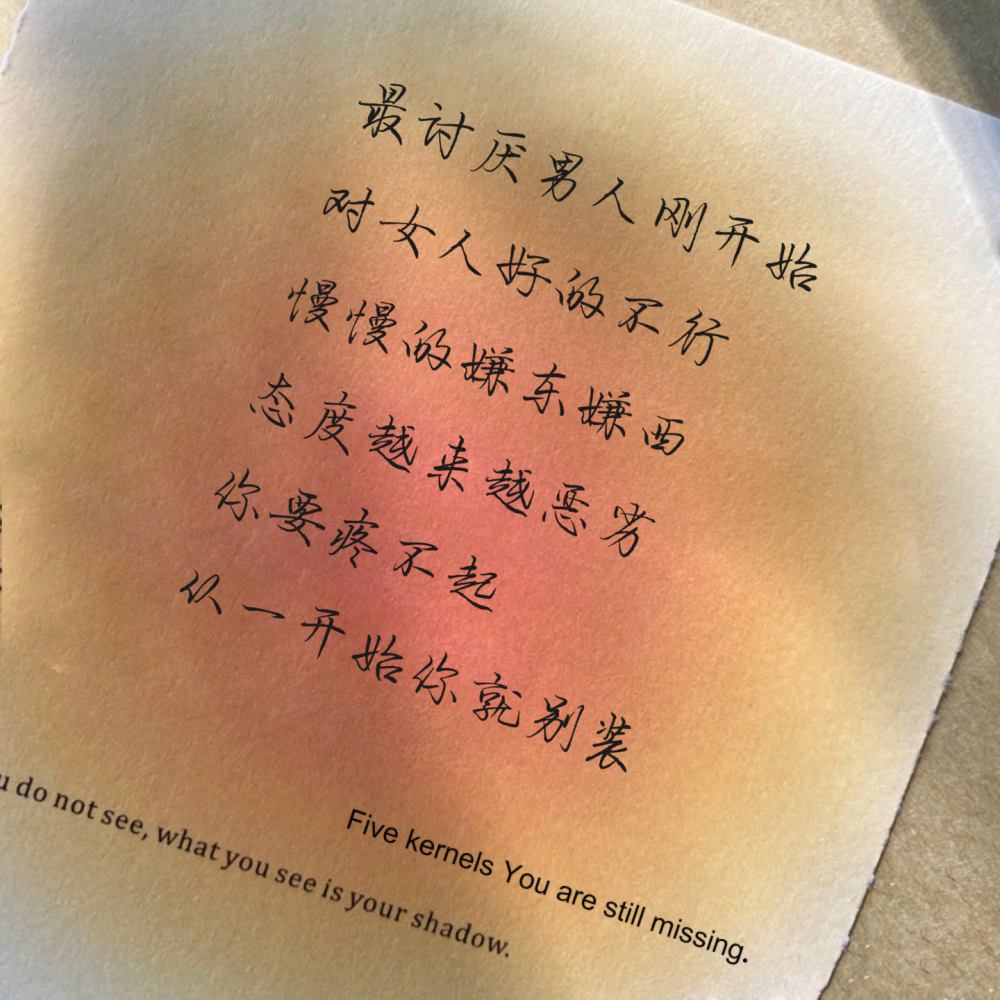 最讨厌男人刚开始
对女人好的不行
慢慢的嫌东嫌西
态度越来越恶劣
你要疼不起
从一开始你就别装
Five kernels You are still missing.
do not see, what you see is your shadow.